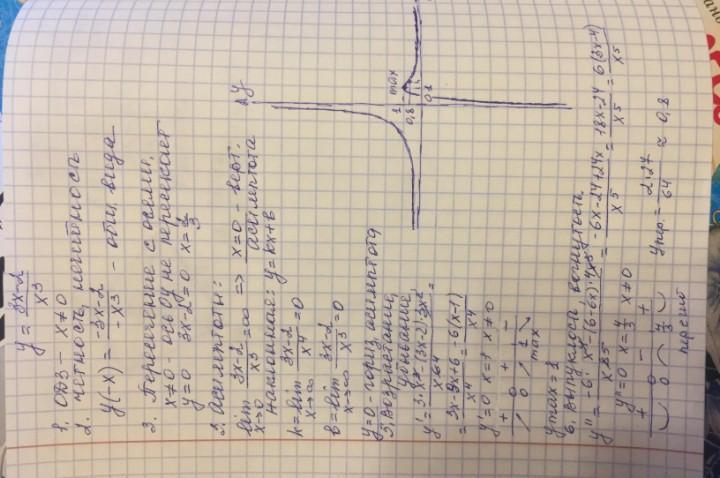 y = (3x-2)/x³
1. ОВЗ - x≠0
2. четность, нечетность
y(-x) = (-3x-2)/(-x³) - общ. вида
3. Пересечение с осями.
x≠0 - ось y не пересекает
y=0 3x-2=0 x=2/3
3. Асимптоты:
lim x→0 (3x-2)/x³ = ∞ => x=0 - верт. асимптота
наклонная: y=kx+b
k=lim x→∞ (3x-2)/x⁴ = 0
b=lim x→∞ (3x-2)/x³ = 0
y=0 - гориз. асимптота
5. Возрастание, убывание
= (3x-9x+6)/x⁴ = 6(x-1)/x⁴
y'=0 x=1 x≠0
+ + -
0 1
max
ymax = 1
6. Выпуклость, вогнутость
= (-6x-24+24x)/x⁵ = (18x-24)/x⁵ = 6(3x-4)/x⁵
y''=0 x=4/3 x≠0
+ - +
0 4/3
перегиб
yпер. = 2·27/64 ≈ 0,8
y
1 max
0,8